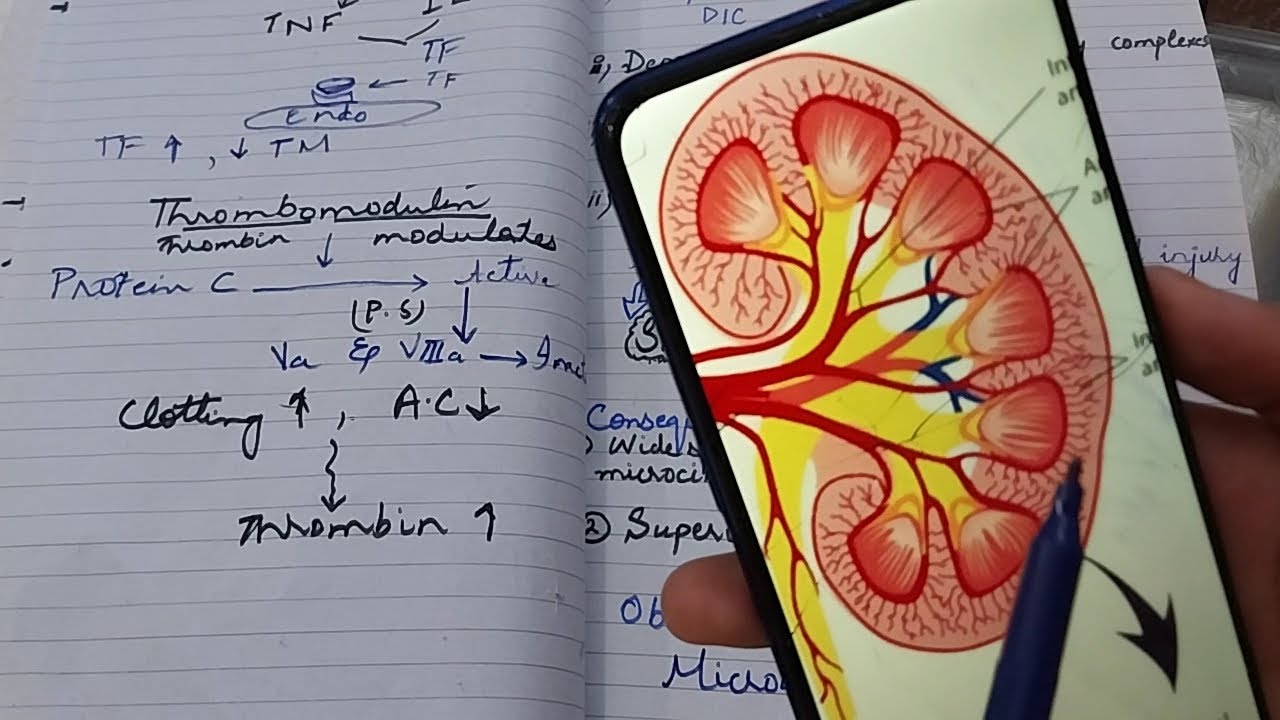 TNF
TF
TF
Endo
TF ↑ , ↓ TM
Thrombomodulin
Thrombin ↓ modulates
Protein C → Active
(P.S) ↓
Va & VIIIa →
Clotting ↑ , A.C ↓
Thrombin ↑
DIC
complexes
ii)
injury
Conseq
Wides
microci
② Super
Ob
Micro
In
ar
A
ar
In
ar